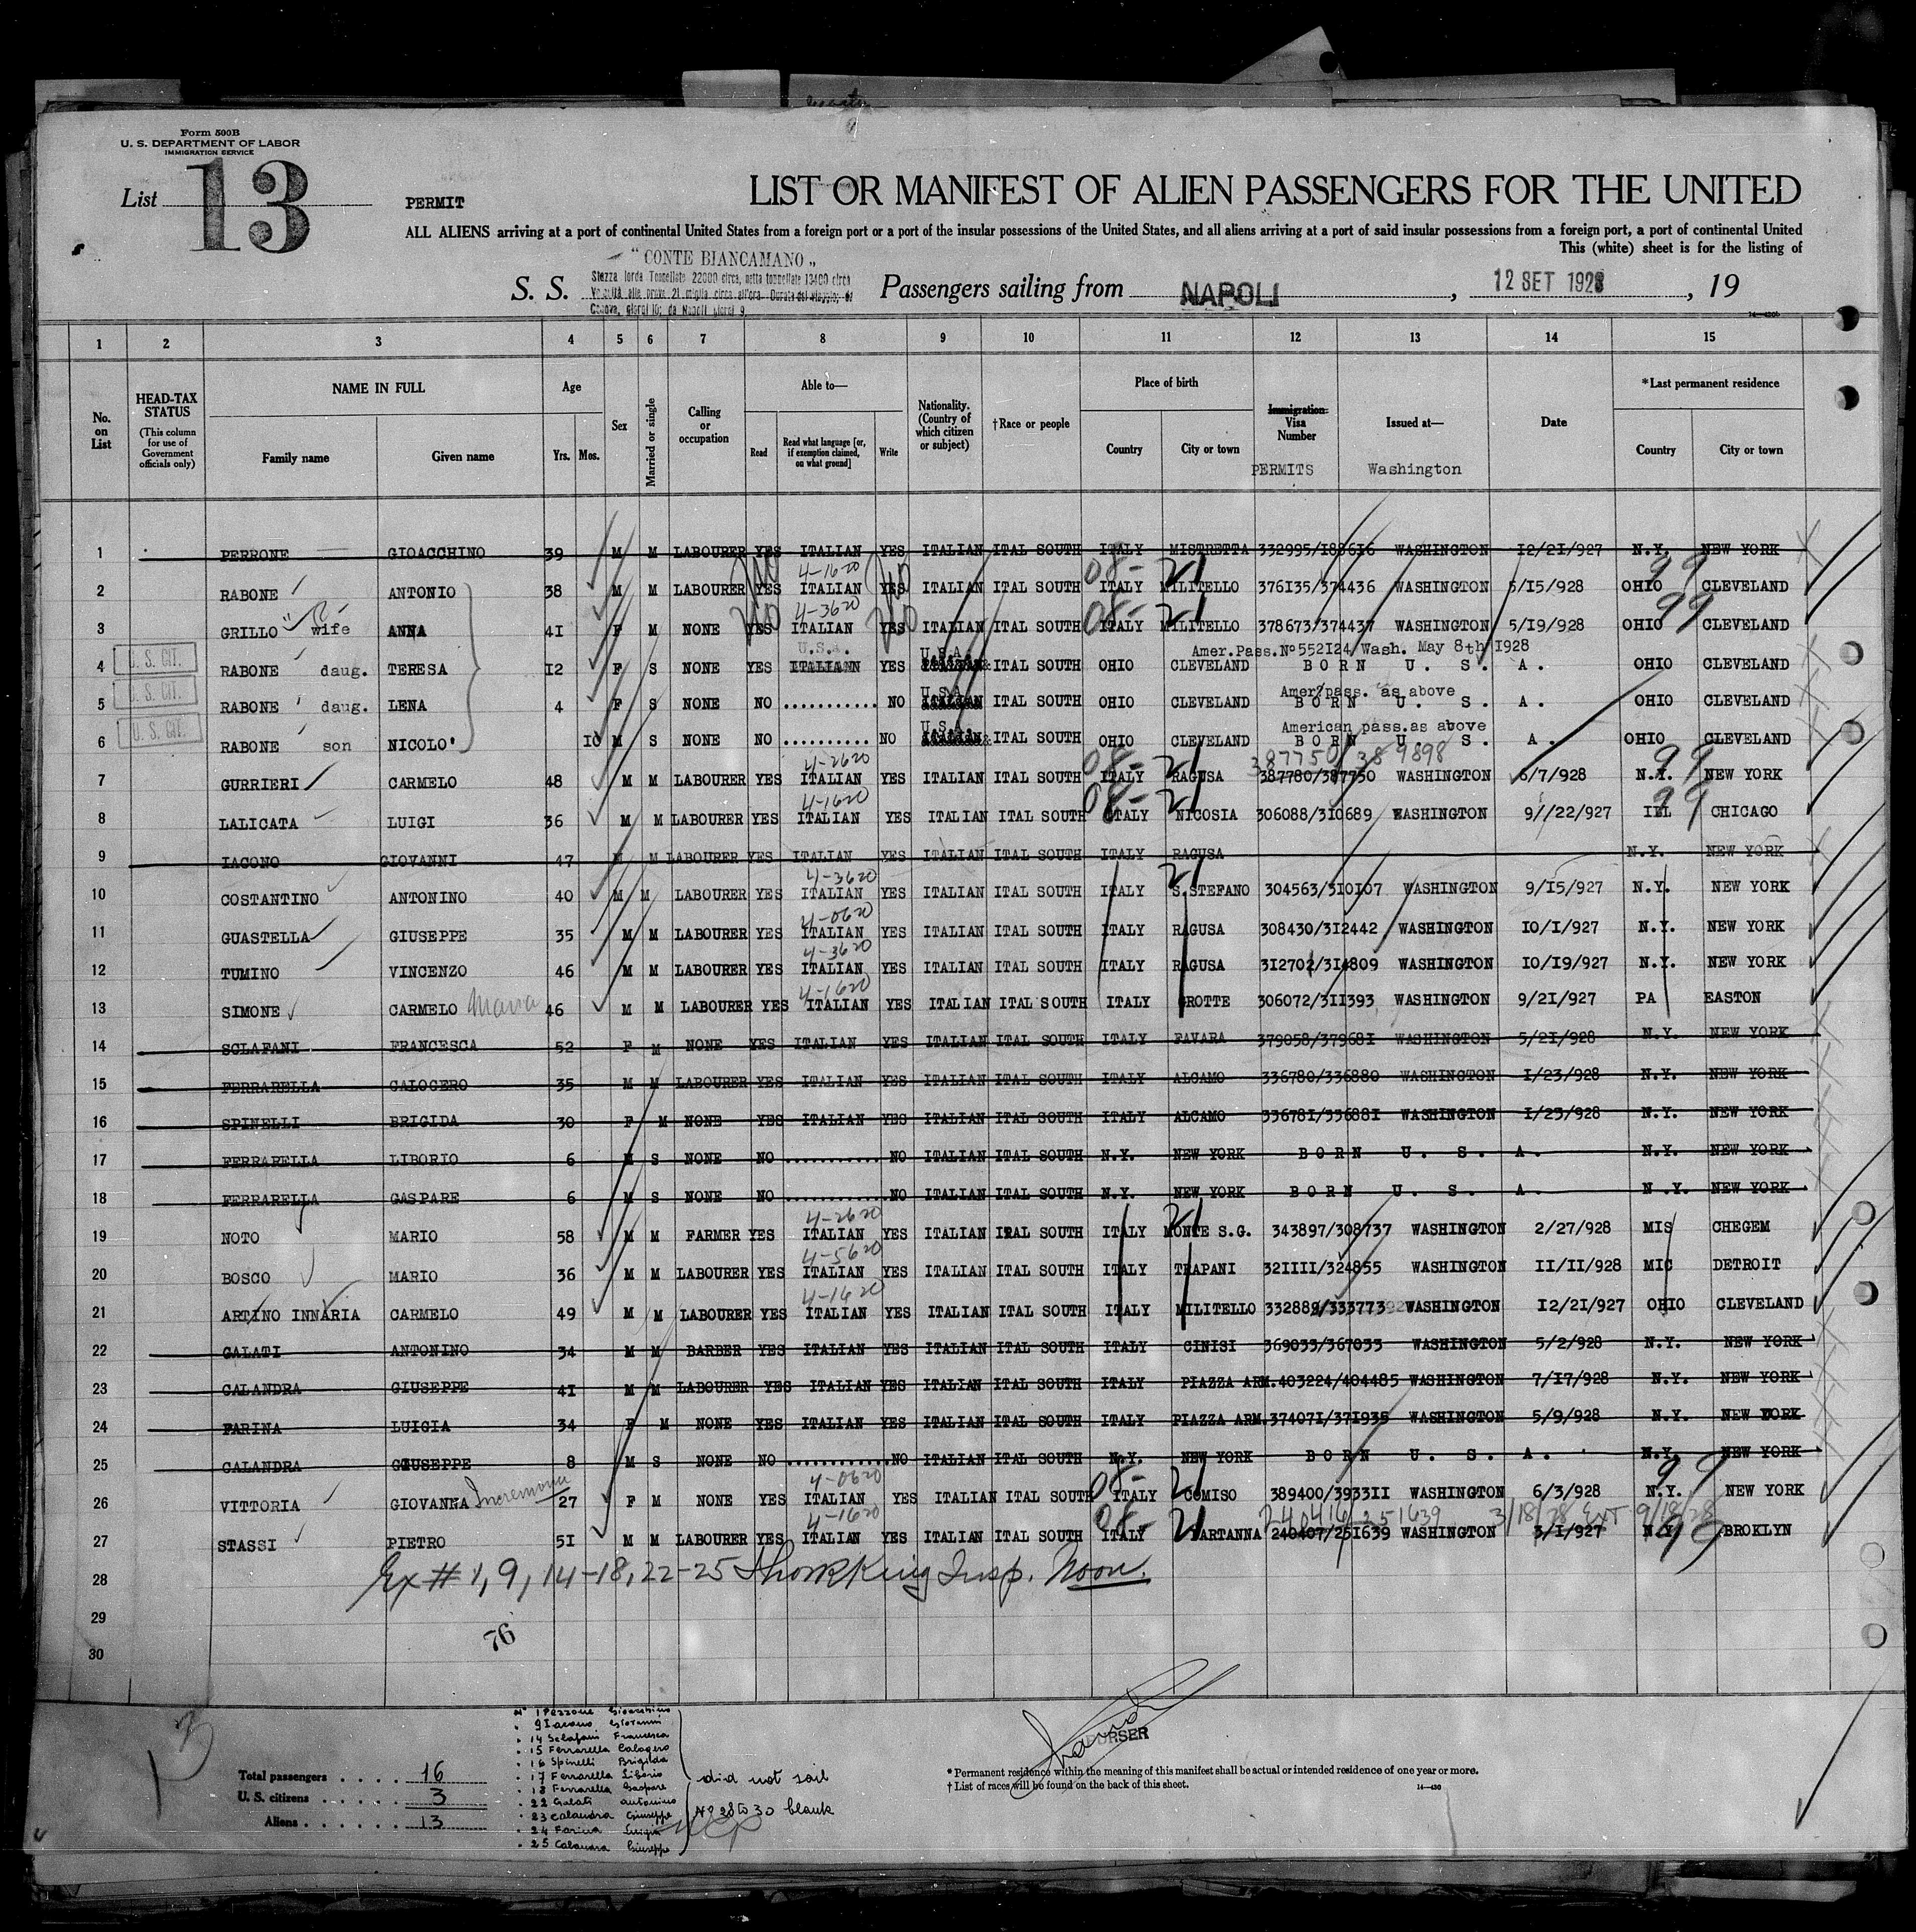 Form 500B
U. S. DEPARTMENT OF LABOR
IMMIGRATION SERVICE
List 13
PERMIT
LIST OR MANIFEST OF ALIEN PASSENGERS FOR THE UNITED
ALL ALIENS arriving at a port of continental United States from a foreign port or a port of the insular possessions of the United States, and all aliens arriving at a port of said insular possessions from a foreign port, a port of continental United
This (white) sheet is for the listing of
"CONTE BIANCAMANO"
Stazza lorda Tonnellate 22000 circa, netta tonnellate 13400 circa
Velocità alle prove 21 miglia circa all'ora - Durata del viaggio; da
Genova, giorni 10; da Napoli giorni 9.
S. S. Passengers sailing from NAPOLI, 12 SET 1928, 19
1 2 3 4 5 6 7 8 9 10 11 12 13 14 15
No. on List
HEAD-TAX STATUS (This column for use of Government officials only)
NAME IN FULL Family name Given name
Age Yrs. Mos.
Sex
Married or single
Calling or occupation
Able to— Read Read what language [or, if exemption claimed, on what ground] Write
Nationality. (Country of which citizen or subject)
†Race or people
Place of birth Country City or town
Immigration Visa Number PERMITS
Issued at— Washington
Date
*Last permanent residence Country City or town
1 PERRONE GIOACCHINO 39 M M LABOURER YES ITALIAN YES ITALIAN ITAL SOUTH ITALY MISTRETTA 332995/183616 WASHINGTON 12/21/927 N.Y. NEW YORK
4-1620
2 RABONE ANTONIO 38 M M LABOURER YES NO ITALIAN YES NO ITALIAN ITAL SOUTH 08- ITALY 21 MILITELLO 376135/374436 WASHINGTON 5/15/928 OHIO 99 CLEVELAND
4-3620
3 GRILLO wife ANNA 41 F M NONE YES NO ITALIAN YES NO ITALIAN ITAL SOUTH 08- ITALY 21 MILITELLO 378673/374437 WASHINGTON 5/19/928 OHIO 99 CLEVELAND
U.S.A. U.S.A. Amer.Pass.Nº552124 Wash. May 8th 1928
U. S. CIT. 4 RABONE daug. TERESA 12 F S NONE YES ITALIAN YES ITAL SOUTH OHIO CLEVELAND BORN U. S. A. OHIO CLEVELAND
U.S.A. Amer pass. as above
U. S. CIT. 5 RABONE daug. LENA 4 F S NONE NO ........... NO ITALIAN ITAL SOUTH OHIO CLEVELAND BORN U. S. A. OHIO CLEVELAND
U.S.A. American pass.as above
U. S. CIT. 6 RABONE son NICOLO' 10 M S NONE NO .......... NO ITALIAN ITAL SOUTH OHIO CLEVELAND BORN U. S. A. OHIO CLEVELAND
4-2620 387750/389898
7 GURRIERI CARMELO 48 M M LABOURER YES ITALIAN YES ITALIAN ITAL SOUTH 08- ITALY 21 RAGUSA 387780/387750 WASHINGTON 6/7/928 N.Y. 99 NEW YORK
4-1620
8 LALICATA LUIGI 36 M M LABOURER YES ITALIAN YES ITALIAN ITAL SOUTH 08- ITALY 21 NICOSIA 306088/310689 WASHINGTON 9//22/927 ILL 99 CHICAGO
9 IACONO GIOVANNI 47 M M LABOURER YES ITALIAN YES ITALIAN ITAL SOUTH ITALY RAGUSA N.Y. NEW YORK
4-3620
10 COSTANTINO ANTONINO 40 M M LABOURER YES ITALIAN YES ITALIAN ITAL SOUTH ITALY 21 S.STEFANO 304563/310107 WASHINGTON 9/15/927 N.Y. NEW YORK
4-0620
11 GUASTELLA GIUSEPPE 35 M M LABOURER YES ITALIAN YES ITALIAN ITAL SOUTH ITALY RAGUSA 308430/312442 WASHINGTON 10/1/927 N.Y. NEW YORK
4-3620
12 TUMINO VINCENZO 46 M M LABOURER YES ITALIAN YES ITALIAN ITAL SOUTH ITALY RAGUSA 312702/314809 WASHINGTON 10/19/927 N.Y. NEW YORK
4-1620
13 SIMONE CARMELO Maria 46 M M LABOURER YES ITALIAN YES ITALIAN ITAL SOUTH ITALY GROTTE 306072/311393 WASHINGTON 9/21/927 PA EASTON
14 SCLAFANI FRANCESCA 52 F M NONE YES ITALIAN YES ITALIAN ITAL SOUTH ITALY FAVARA 379058/379681 WASHINGTON 5/21/928 N.Y. NEW YORK
15 FERRARELLA CALOGERO 35 M M LABOURER YES ITALIAN YES ITALIAN ITAL SOUTH ITALY ALCAMO 336780/336880 WASHINGTON 1/23/928 N.Y. NEW YORK
16 SPINELLI BRIGIDA 30 F M NONE YES ITALIAN YES ITALIAN ITAL SOUTH ITALY ALCAMO 336781/336881 WASHINGTON 1/23/928 N.Y. NEW YORK
17 FERRARELLA LIBORIO 6 M S NONE NO ........... NO ITALIAN ITAL SOUTH N.Y. NEW YORK BORN U. S. A. N.Y. NEW YORK
18 FERRARELLA GASPARE 6 M S NONE NO ........... NO ITALIAN ITAL SOUTH N.Y. NEW YORK BORN U. S. A. N.Y. NEW YORK
4-2620
19 NOTO MARIO 58 M M FARMER YES ITALIAN YES ITALIAN ITAL SOUTH ITALY 21 MONTE S.G. 343897/308737 WASHINGTON 2/27/928 MIS CHEGEM
4-5620
20 BOSCO MARIO 36 M M LABOURER YES ITALIAN YES ITALIAN ITAL SOUTH ITALY TRAPANI 321111/324855 WASHINGTON 11/11/928 MIC DETROIT
4-1620
21 ARTINO INNARIA CARMELO 49 M M LABOURER YES ITALIAN YES ITALIAN ITAL SOUTH ITALY MILITELLO 332889/333773 WASHINGTON 12/21/927 OHIO CLEVELAND
22 GALATI ANTONINO 34 M M BARBER YES ITALIAN YES ITALIAN ITAL SOUTH ITALY CINISI 369033/367033 WASHINGTON 5/2/928 N.Y. NEW YORK
23 CALANDRA GIUSEPPE 41 M M LABOURER YES ITALIAN YES ITALIAN ITAL SOUTH ITALY PIAZZA ARM. 403224/404485 WASHINGTON 7/17/928 N.Y. NEW YORK
24 FARINA LUIGIA 34 F M NONE YES ITALIAN YES ITALIAN ITAL SOUTH ITALY PIAZZA ARM. 374071/371935 WASHINGTON 5/9/928 N.Y. NEW YORK
25 CALANDRA GIUSEPPE 8 M S NONE NO ............ NO ITALIAN ITAL SOUTH N.Y. NEW YORK BORN U. S. A. N.Y. NEW YORK
4-0620
26 VITTORIA GIOVANNA Incremona 27 F M NONE YES ITALIAN YES ITALIAN ITAL SOUTH 08- ITALY 21 COMISO 389400/393311 WASHINGTON 6/3/928 N.Y. 99 NEW YORK
4-1620 240416/251639 3/18/28 Ext 9/18/28
27 STASSI PIETRO 51 M M LABOURER YES ITALIAN YES ITALIAN ITAL SOUTH 08- ITALY 21 PARTANNA 240407/251639 WASHINGTON 3/1/927 N.Y. 99 BROKLYN
28 Ex # 1, 9, 14-18, 22-25 Insp. Noon.
29
76
30
Nº 1 Perrone Gioacchino
" 9 Iacono Giovanni
" 14 Sclafani Francesca
" 15 Ferrarella Calogero
" 16 Spinelli Brigida
" 17 Ferrarella Liborio
" 18 Ferrarella Gaspare
" 22 Galati Antonino
" 23 Calandra Giuseppe
" 24 Farina Luigia
" 25 Calandra Giuseppe
did not sail
Nº 28 to 30 blank
Total passengers . . . . 16
U. S. citizens . . . . . 3
Aliens . . . . . . 13
PURSER
*Permanent residence within the meaning of this manifest shall be actual or intended residence of one year or more.
†List of races will be found on the back of this sheet.
14—430